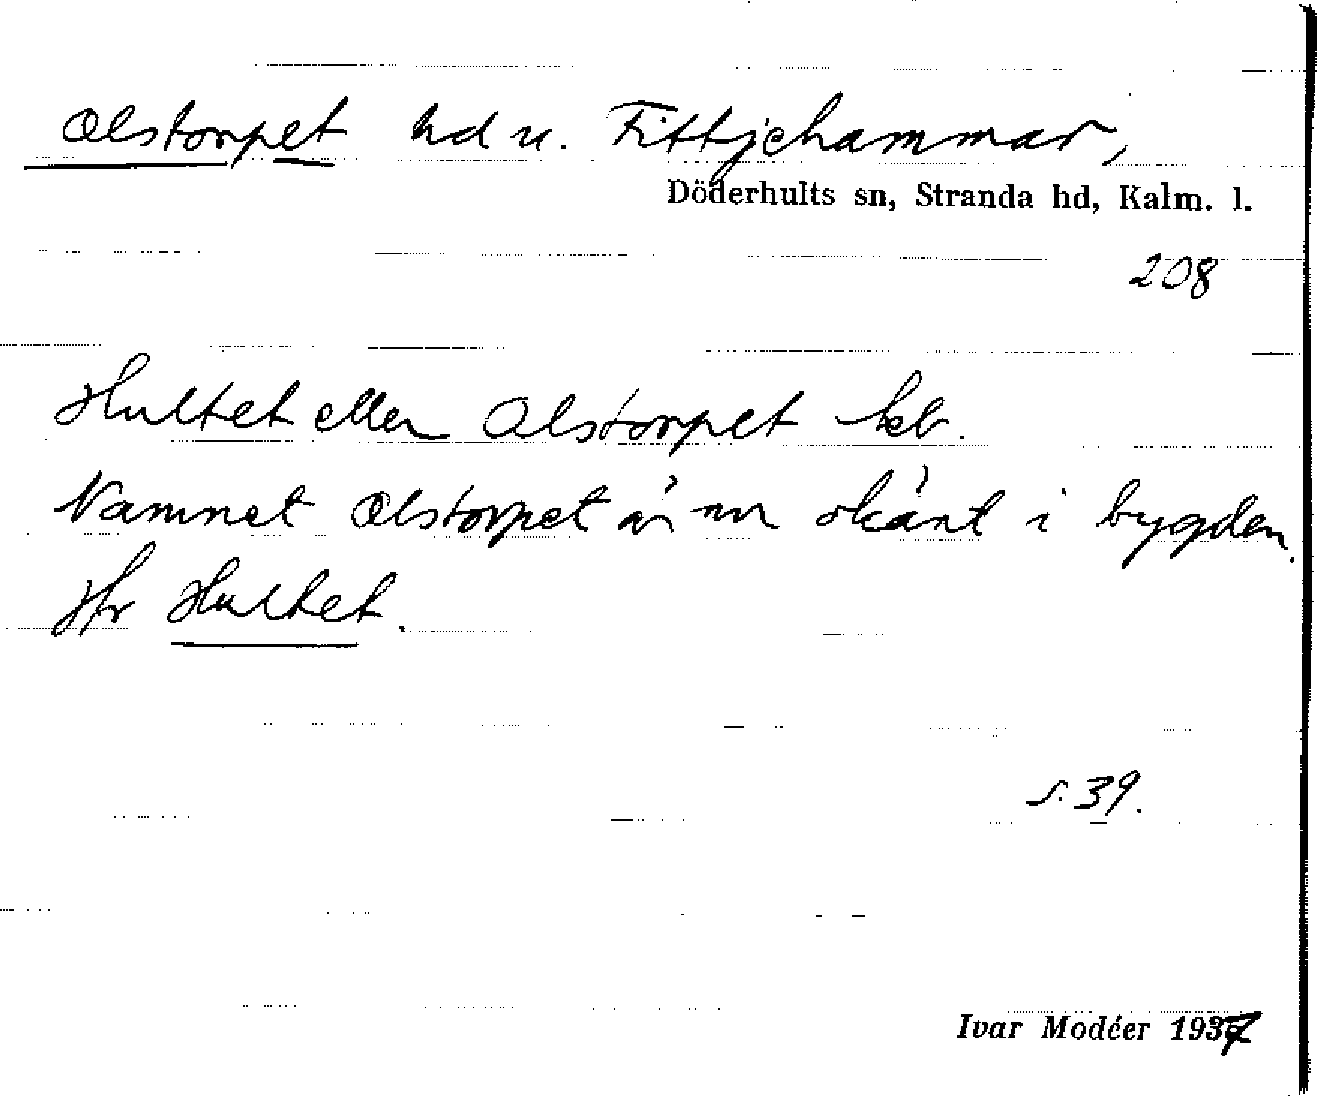 Olstorpet hd u. Fittjehammar,
Döderhults sn, Stranda hd, Kalm. l.
208
Hultet eller Olstorpet keb.
Namnet Olstorpet är nu okänt i bygden.
Jfr Hultet.
s. 39.
Ivar Modéer 1937